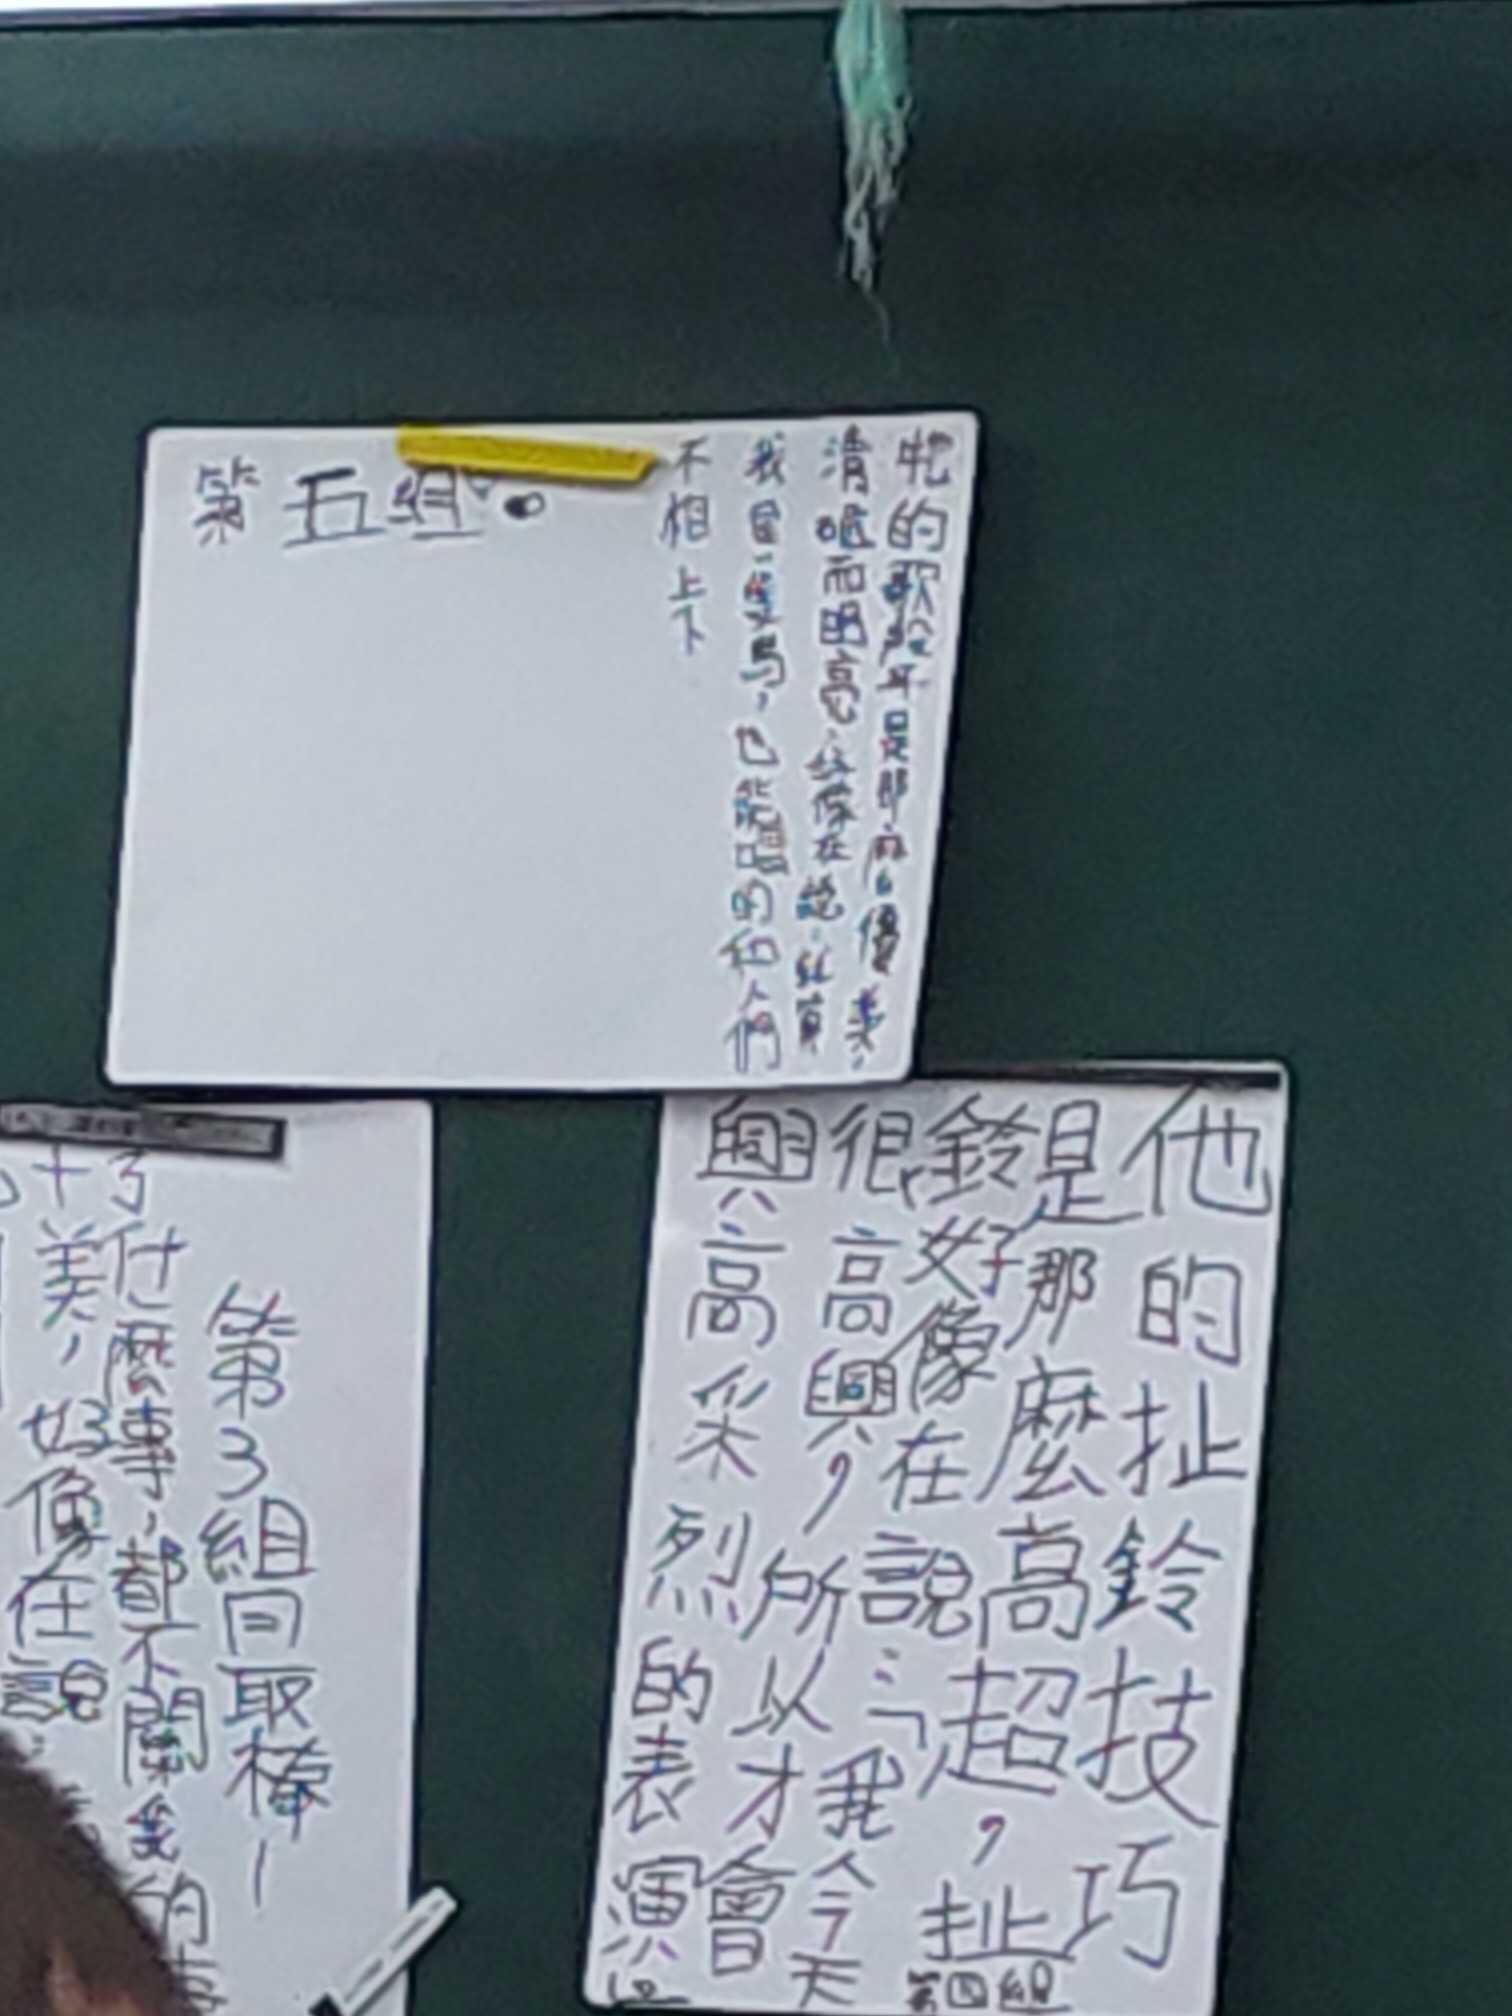 牠的歌聲是那麼優美,
清晰而明亮,好像在說:就算
我是一隻鳥,也能唱的和人們
不相上下
第五組
他的扯鈴技巧
是那麼高超,扯
鈴好像在說:「我今天
很高興,所以才會
興高采烈的表演
第四組
第3組最棒!
了什麼事,都不關我的
十美,好像在說: